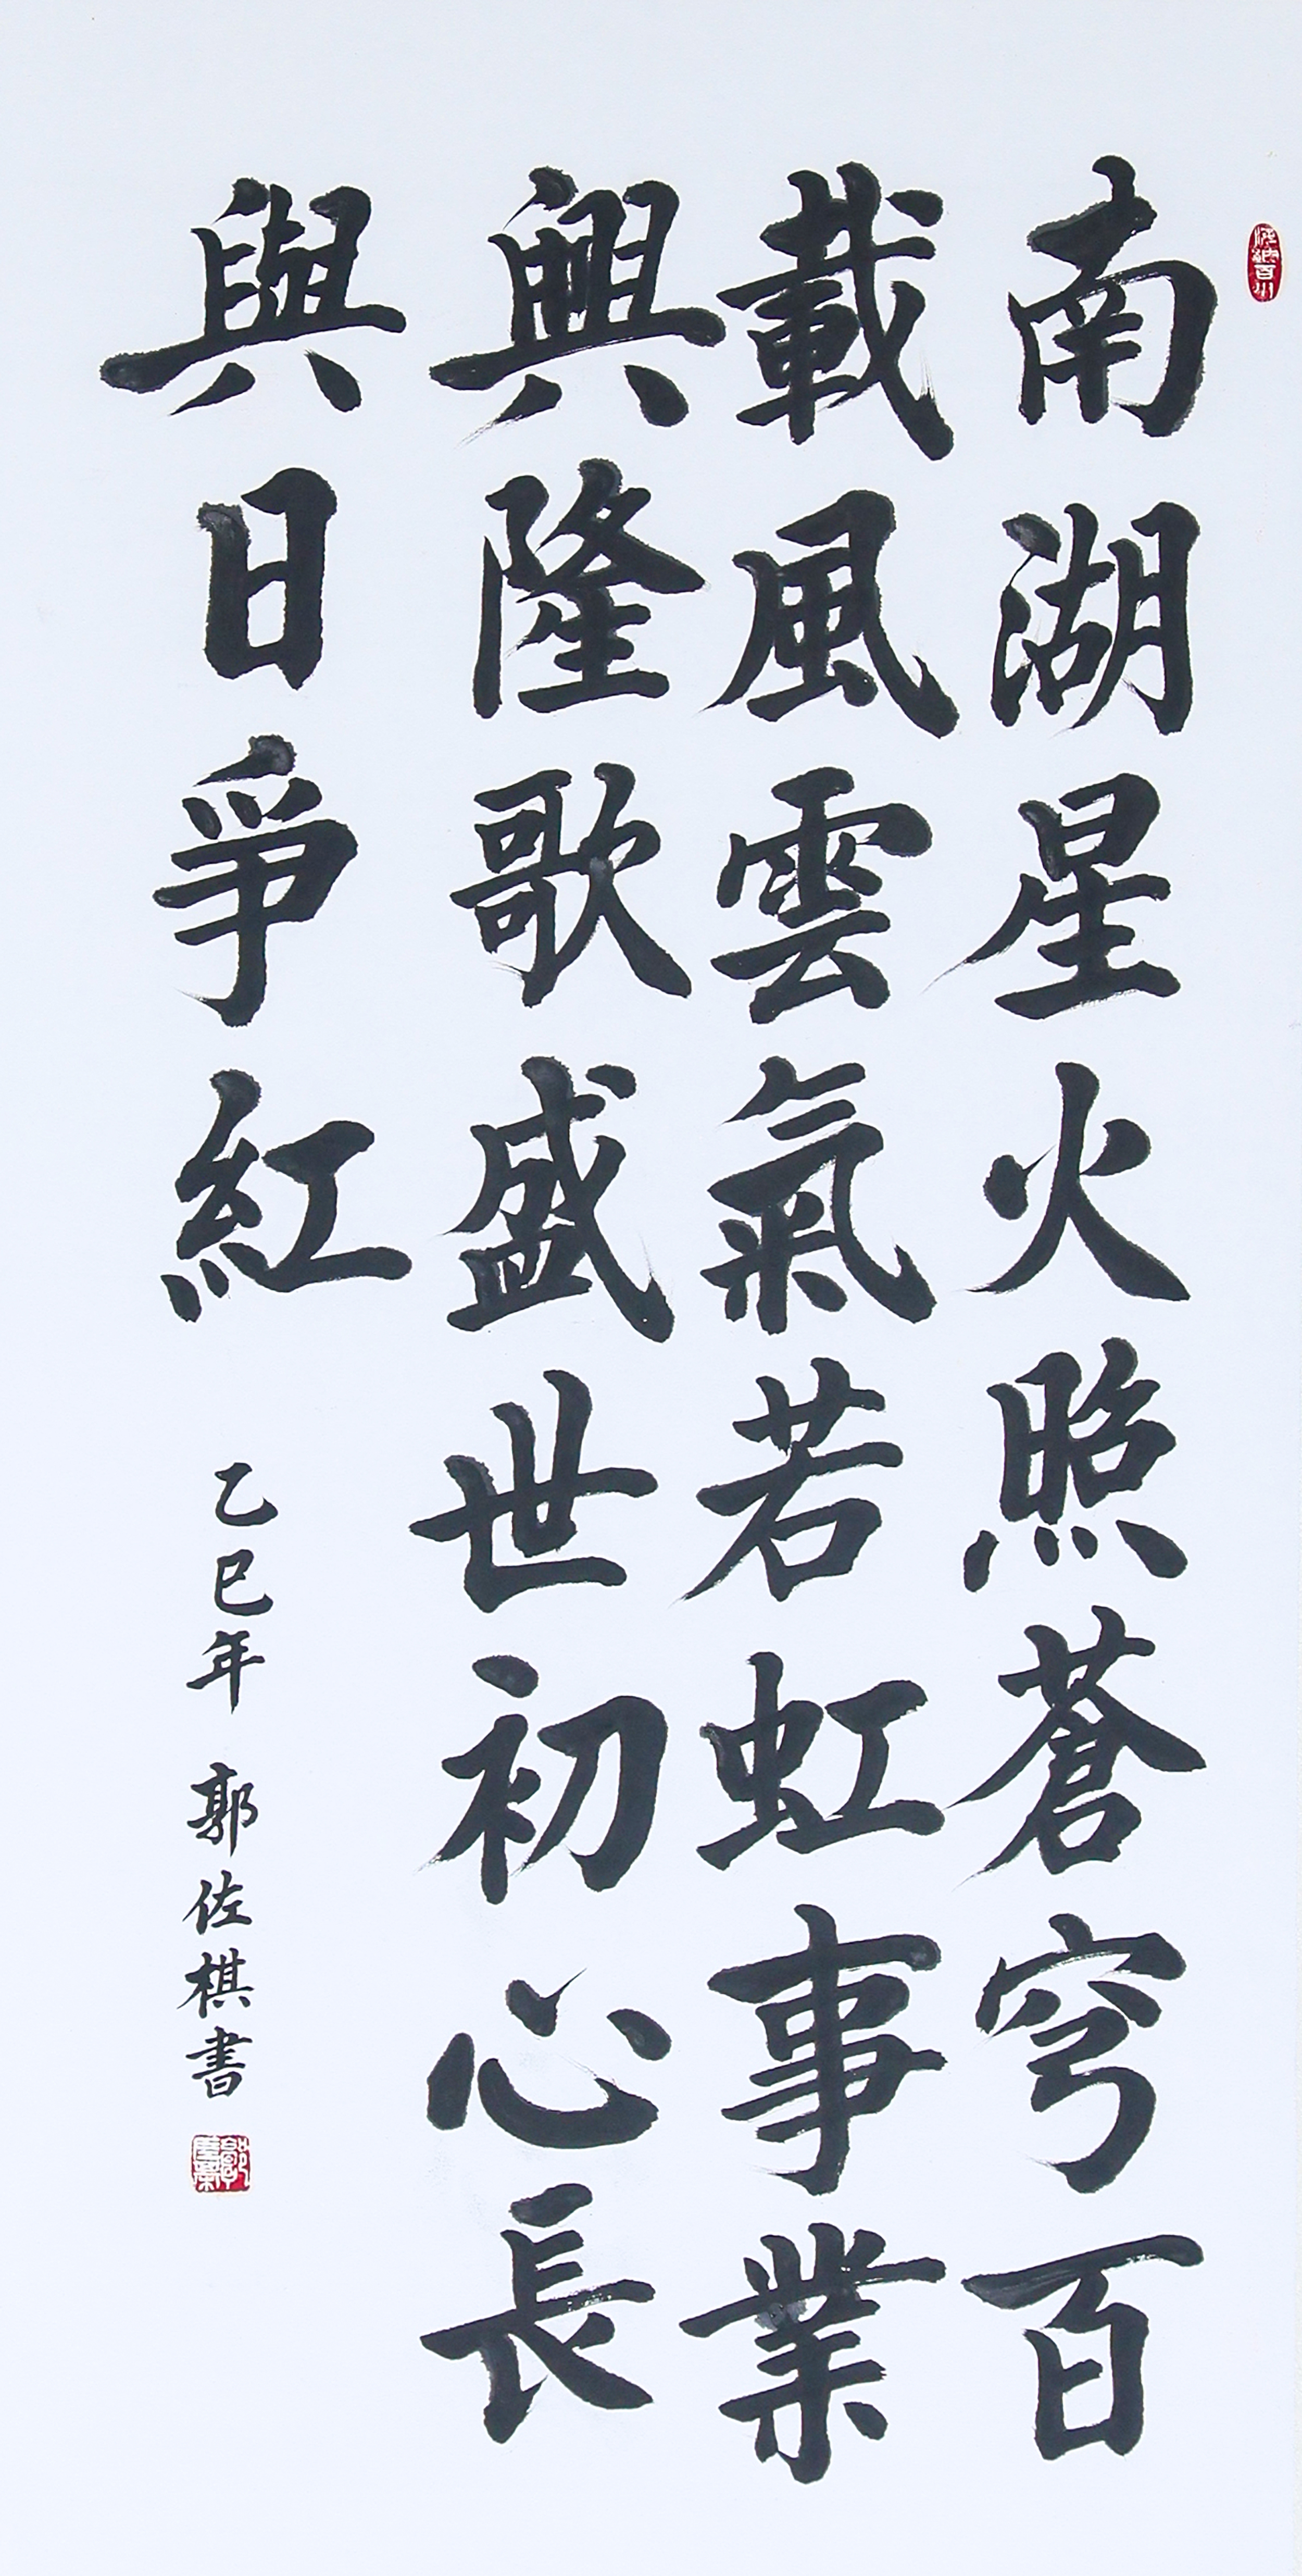 南湖星火照蒼穹百
載風雲氣若虹事業
興隆歌盛世初心長
與日爭紅
乙巳年 郭佐棋書
海納百川